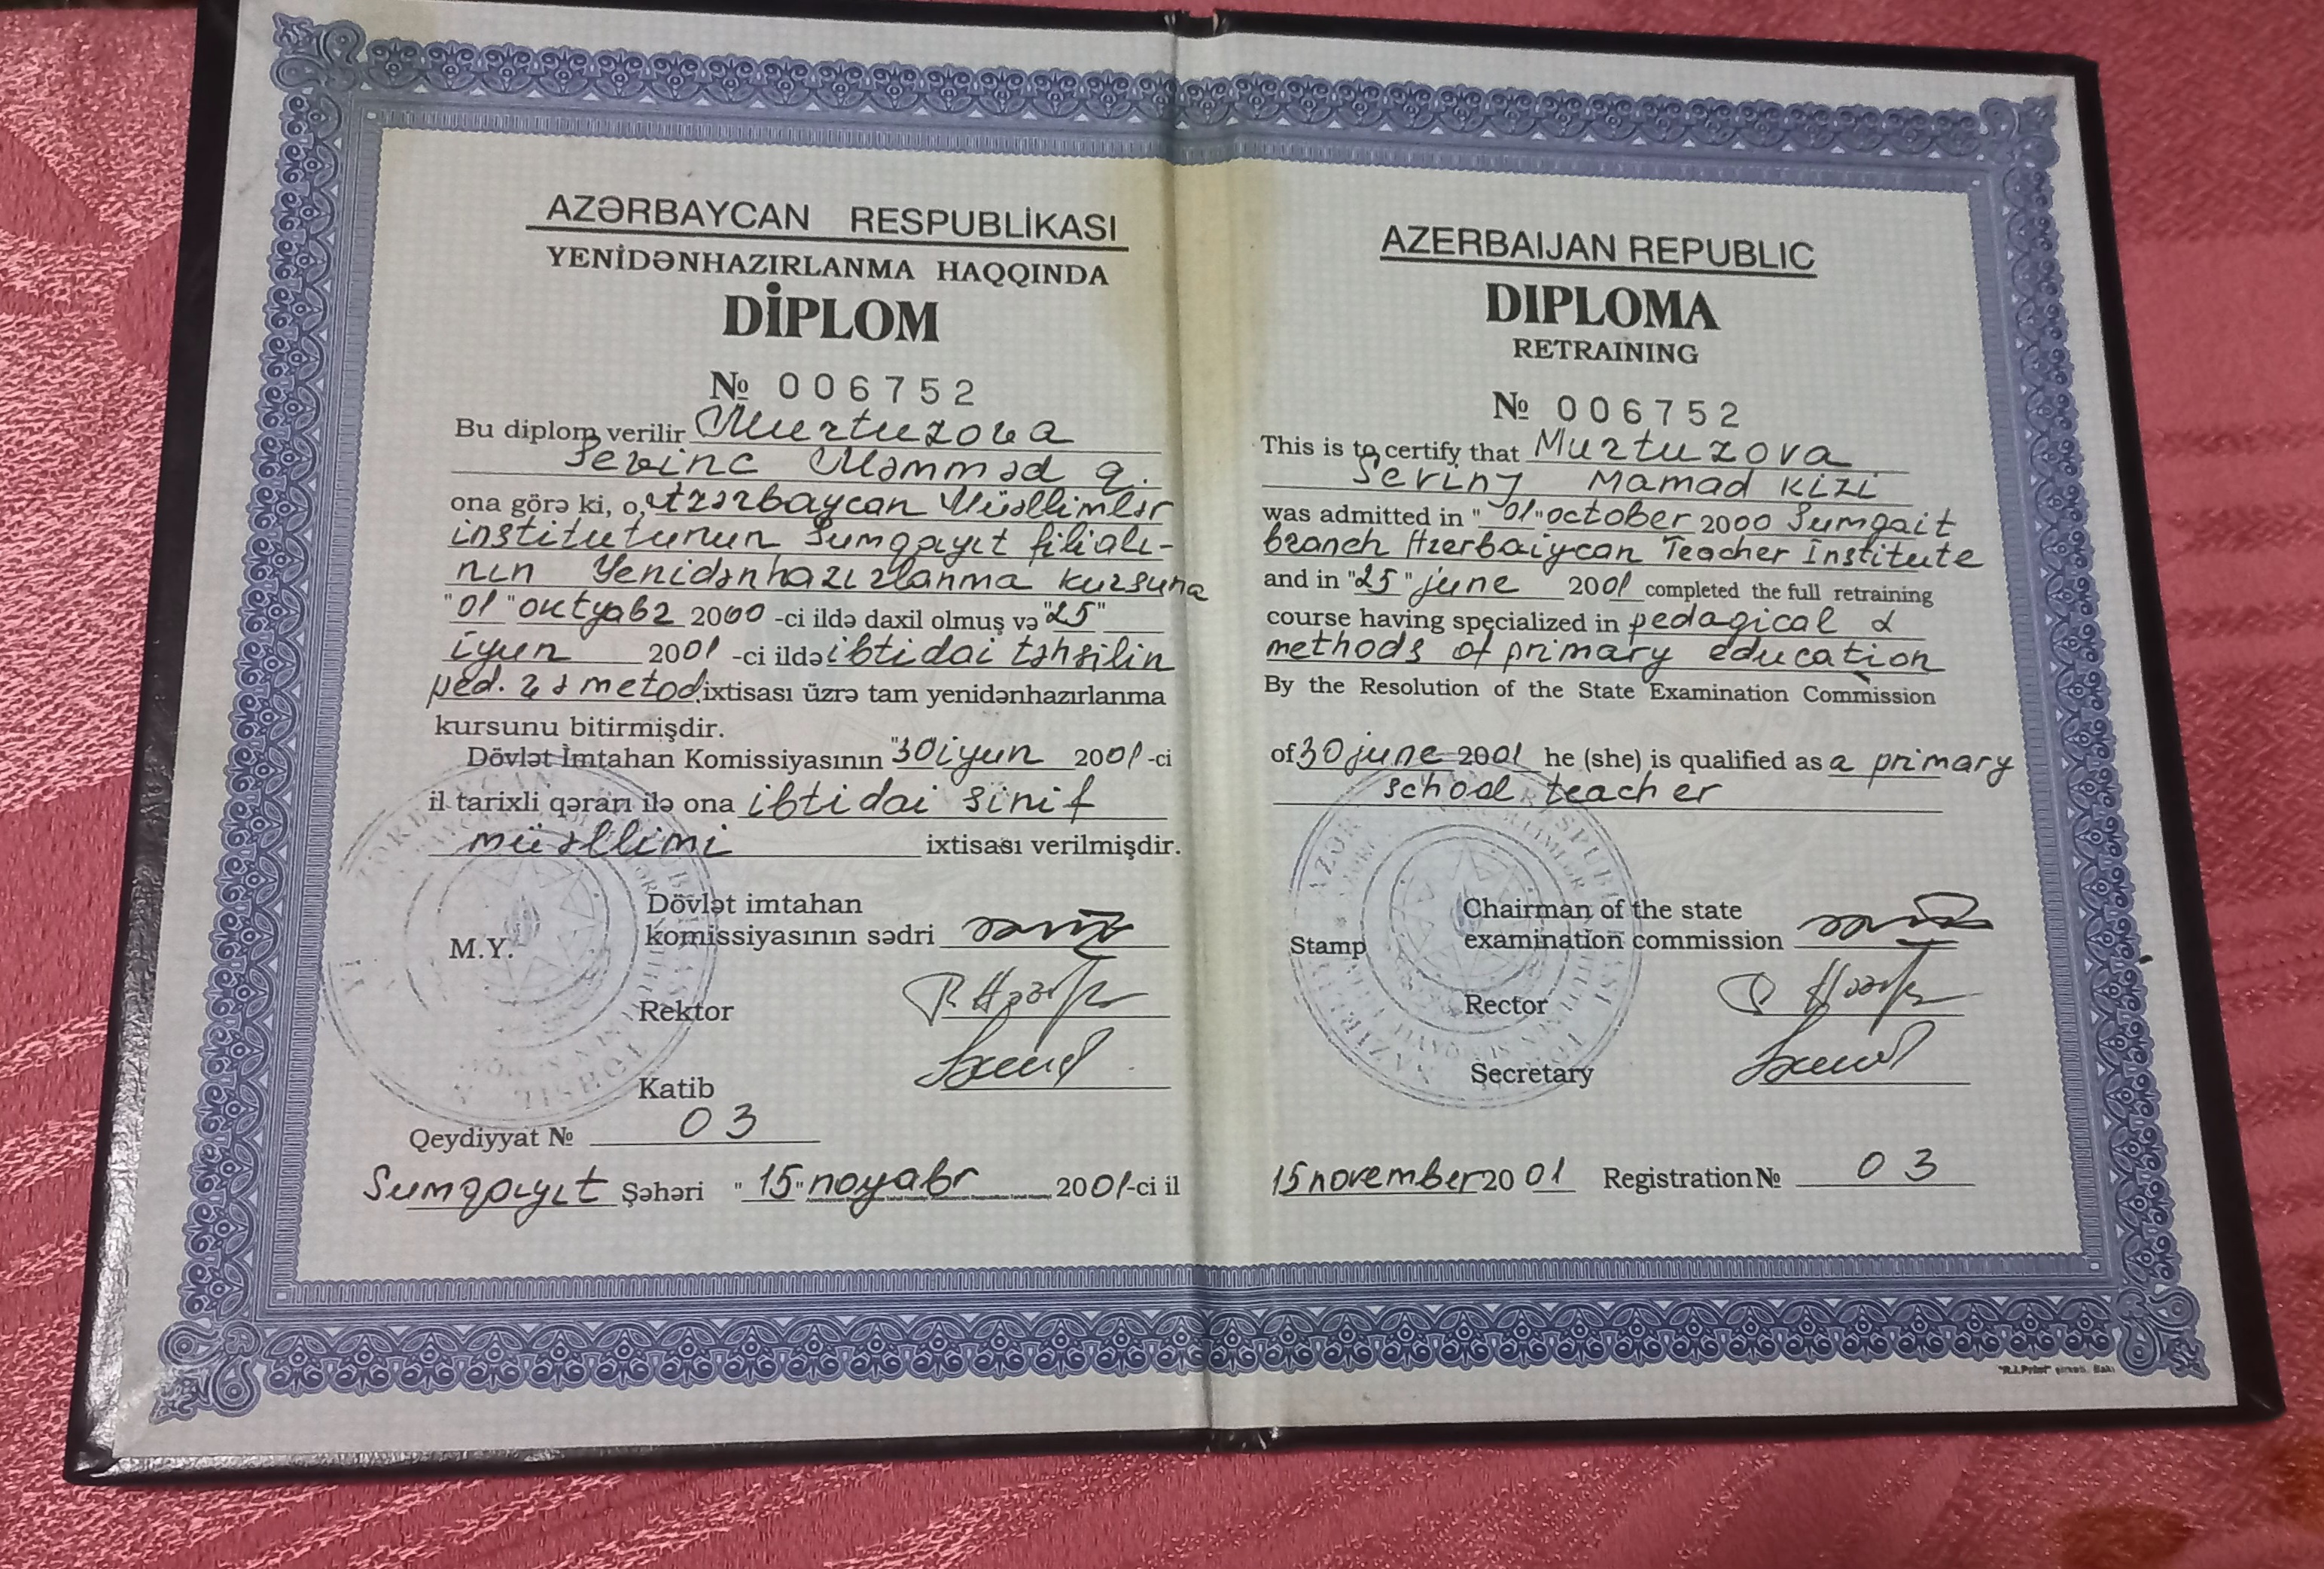 AZƏRBAYCAN RESPUBLİKASI
YENİDƏNHAZIRLANMA HAQQINDA
DİPLOM
№ 006752
Bu diplom verilir Murtuzova
Sevinc Məmməd q.
ona görə ki, o, Azərbaycan Müəllimlər
institutunun Sumqayıt filialı-
nın Yenidənhazırlanma kursuna
"01" oktyabr 2000 -ci ildə daxil olmuş və "25"
iyun 2001 -ci ildə ibtidai təhsilin
ped. və metod. ixtisası üzrə tam yenidənhazırlanma
kursunu bitirmişdir.
Dövlət İmtahan Komissiyasının "30 iyun 2001 -ci
il tarixli qərarı ilə ona ibtidai sinif
müəllimi ixtisası verilmişdir.
Dövlət imtahan
komissiyasının sədri
M.Y.
Rektor
Katib
Qeydiyyat № 03
Sumqayıt Şəhəri "15" noyabr 2001-ci il
AZERBAIJAN REPUBLIC
DIPLOMA
RETRAINING
№ 006752
This is to certify that Murtuzova
Sevinj Mamad kizi
was admitted in "01" october 2000 Sumgait
branch Azerbaiycan Teacher Institute
and in "25" june 2001 completed the full retraining
course having specialized in pedagical &
methods of primary education
By the Resolution of the State Examination Commission
of 30 june 2001 he (she) is qualified as a primary
school teacher
Chairman of the state
examination commission
Stamp
Rector
Secretary
15 november 20 01 Registration № 03
"R.I.Print" şirkəti. Bakı